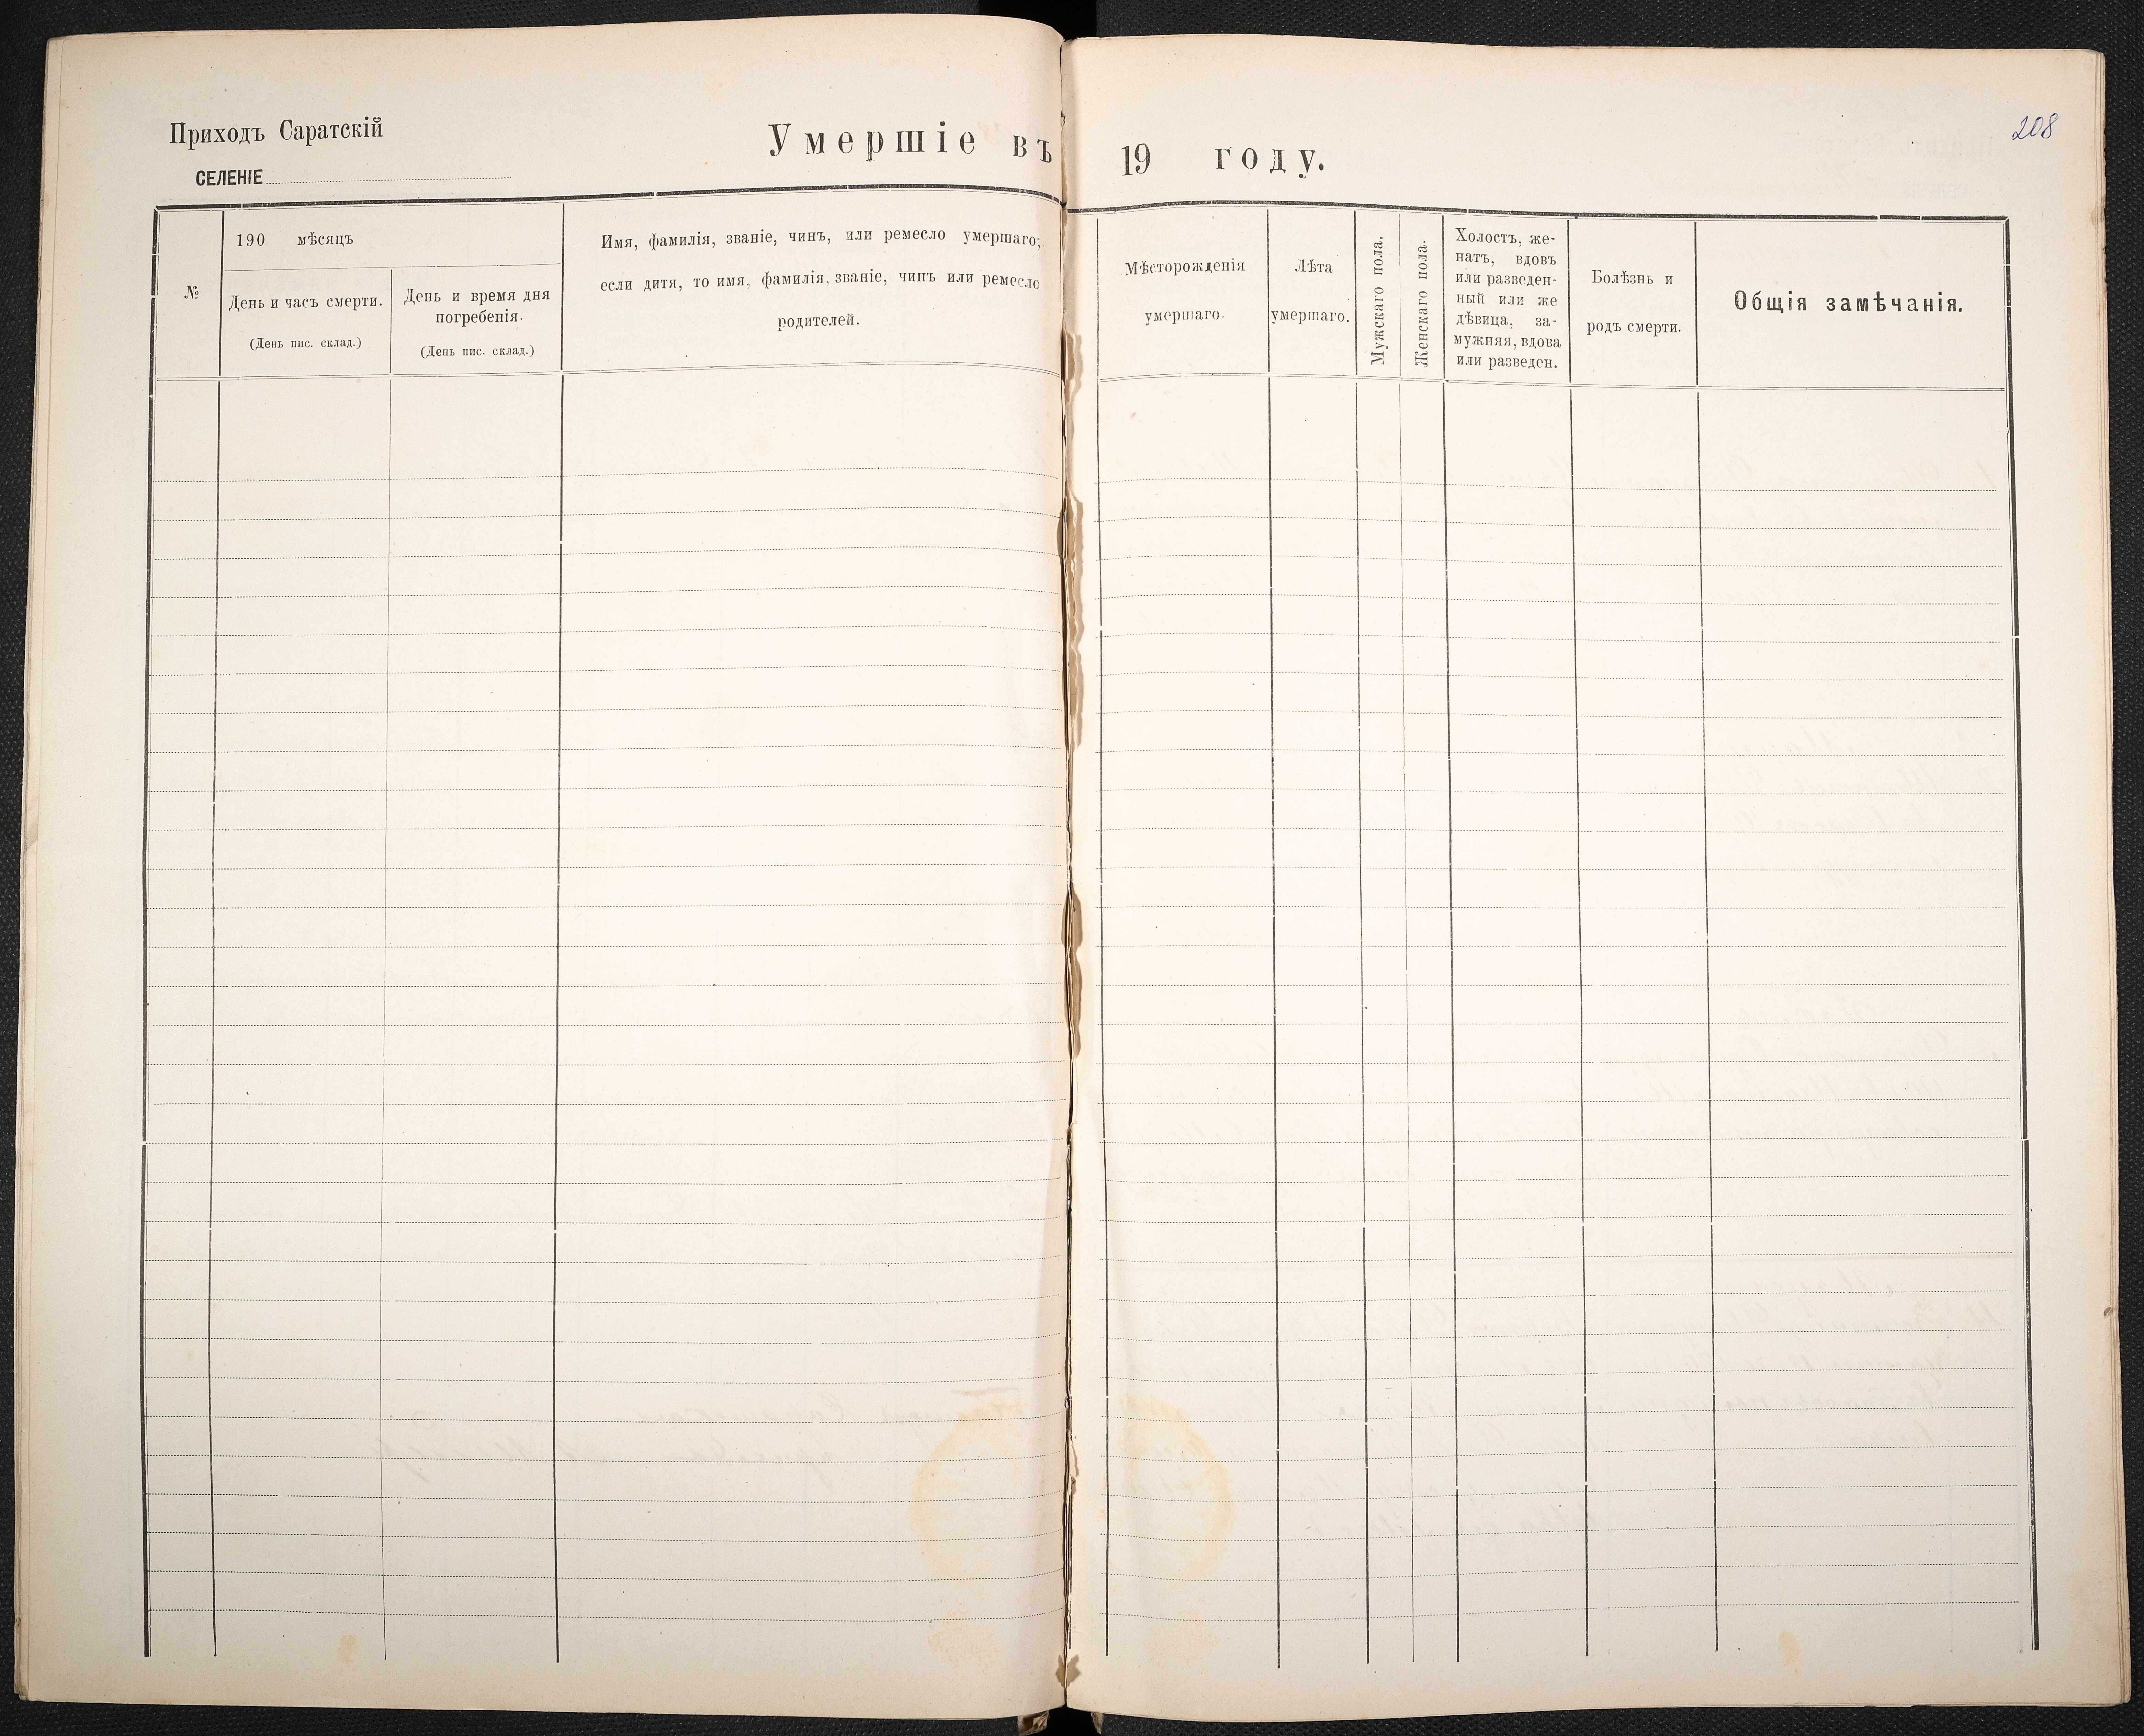 208
Приходъ Саратскій
СЕЛЕНІЕ
Умершіе въ 19 году.
№
190 мѣсяцъ
День и часъ смерти.
(День пис. склад.)
День и время дня
погребенія.
(День пис. склад.)
Имя, фамилія, званіе, чинъ, или ремесло умершаго;
если дитя, то имя, фамилія, званіе, чинъ или ремесло
родителей.
Мѣсторожденія
умершаго.
Лѣта
умершаго.
Мужскаго пола.
Женскаго пола.
Холостъ, же-
натъ, вдовъ
или разведен-
ный или же
дѣвица, за-
мужняя, вдова
или разведен.
Болѣзнь и
родъ смерти.
Общія замѣчанія.